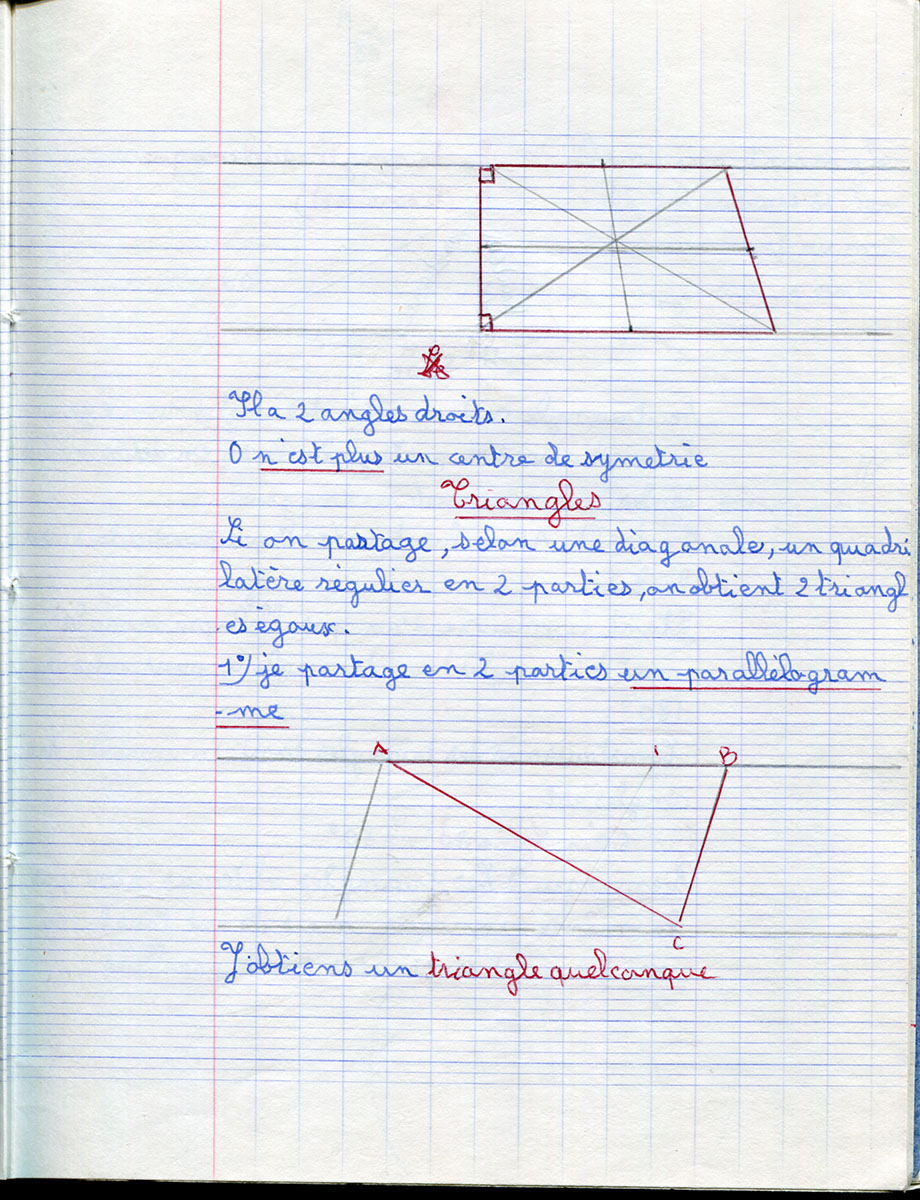 Il a 2 angles droits.
O n'est plus un centre de symetrie
Triangles
Si on partage, selon une diagonale, un quadri
latère régulier en 2 parties, on obtient 2 triangl
es égaux.
1°) je partage en 2 parties un parallélogram
-me
A B
C
J'obtiens un triangle quelconque